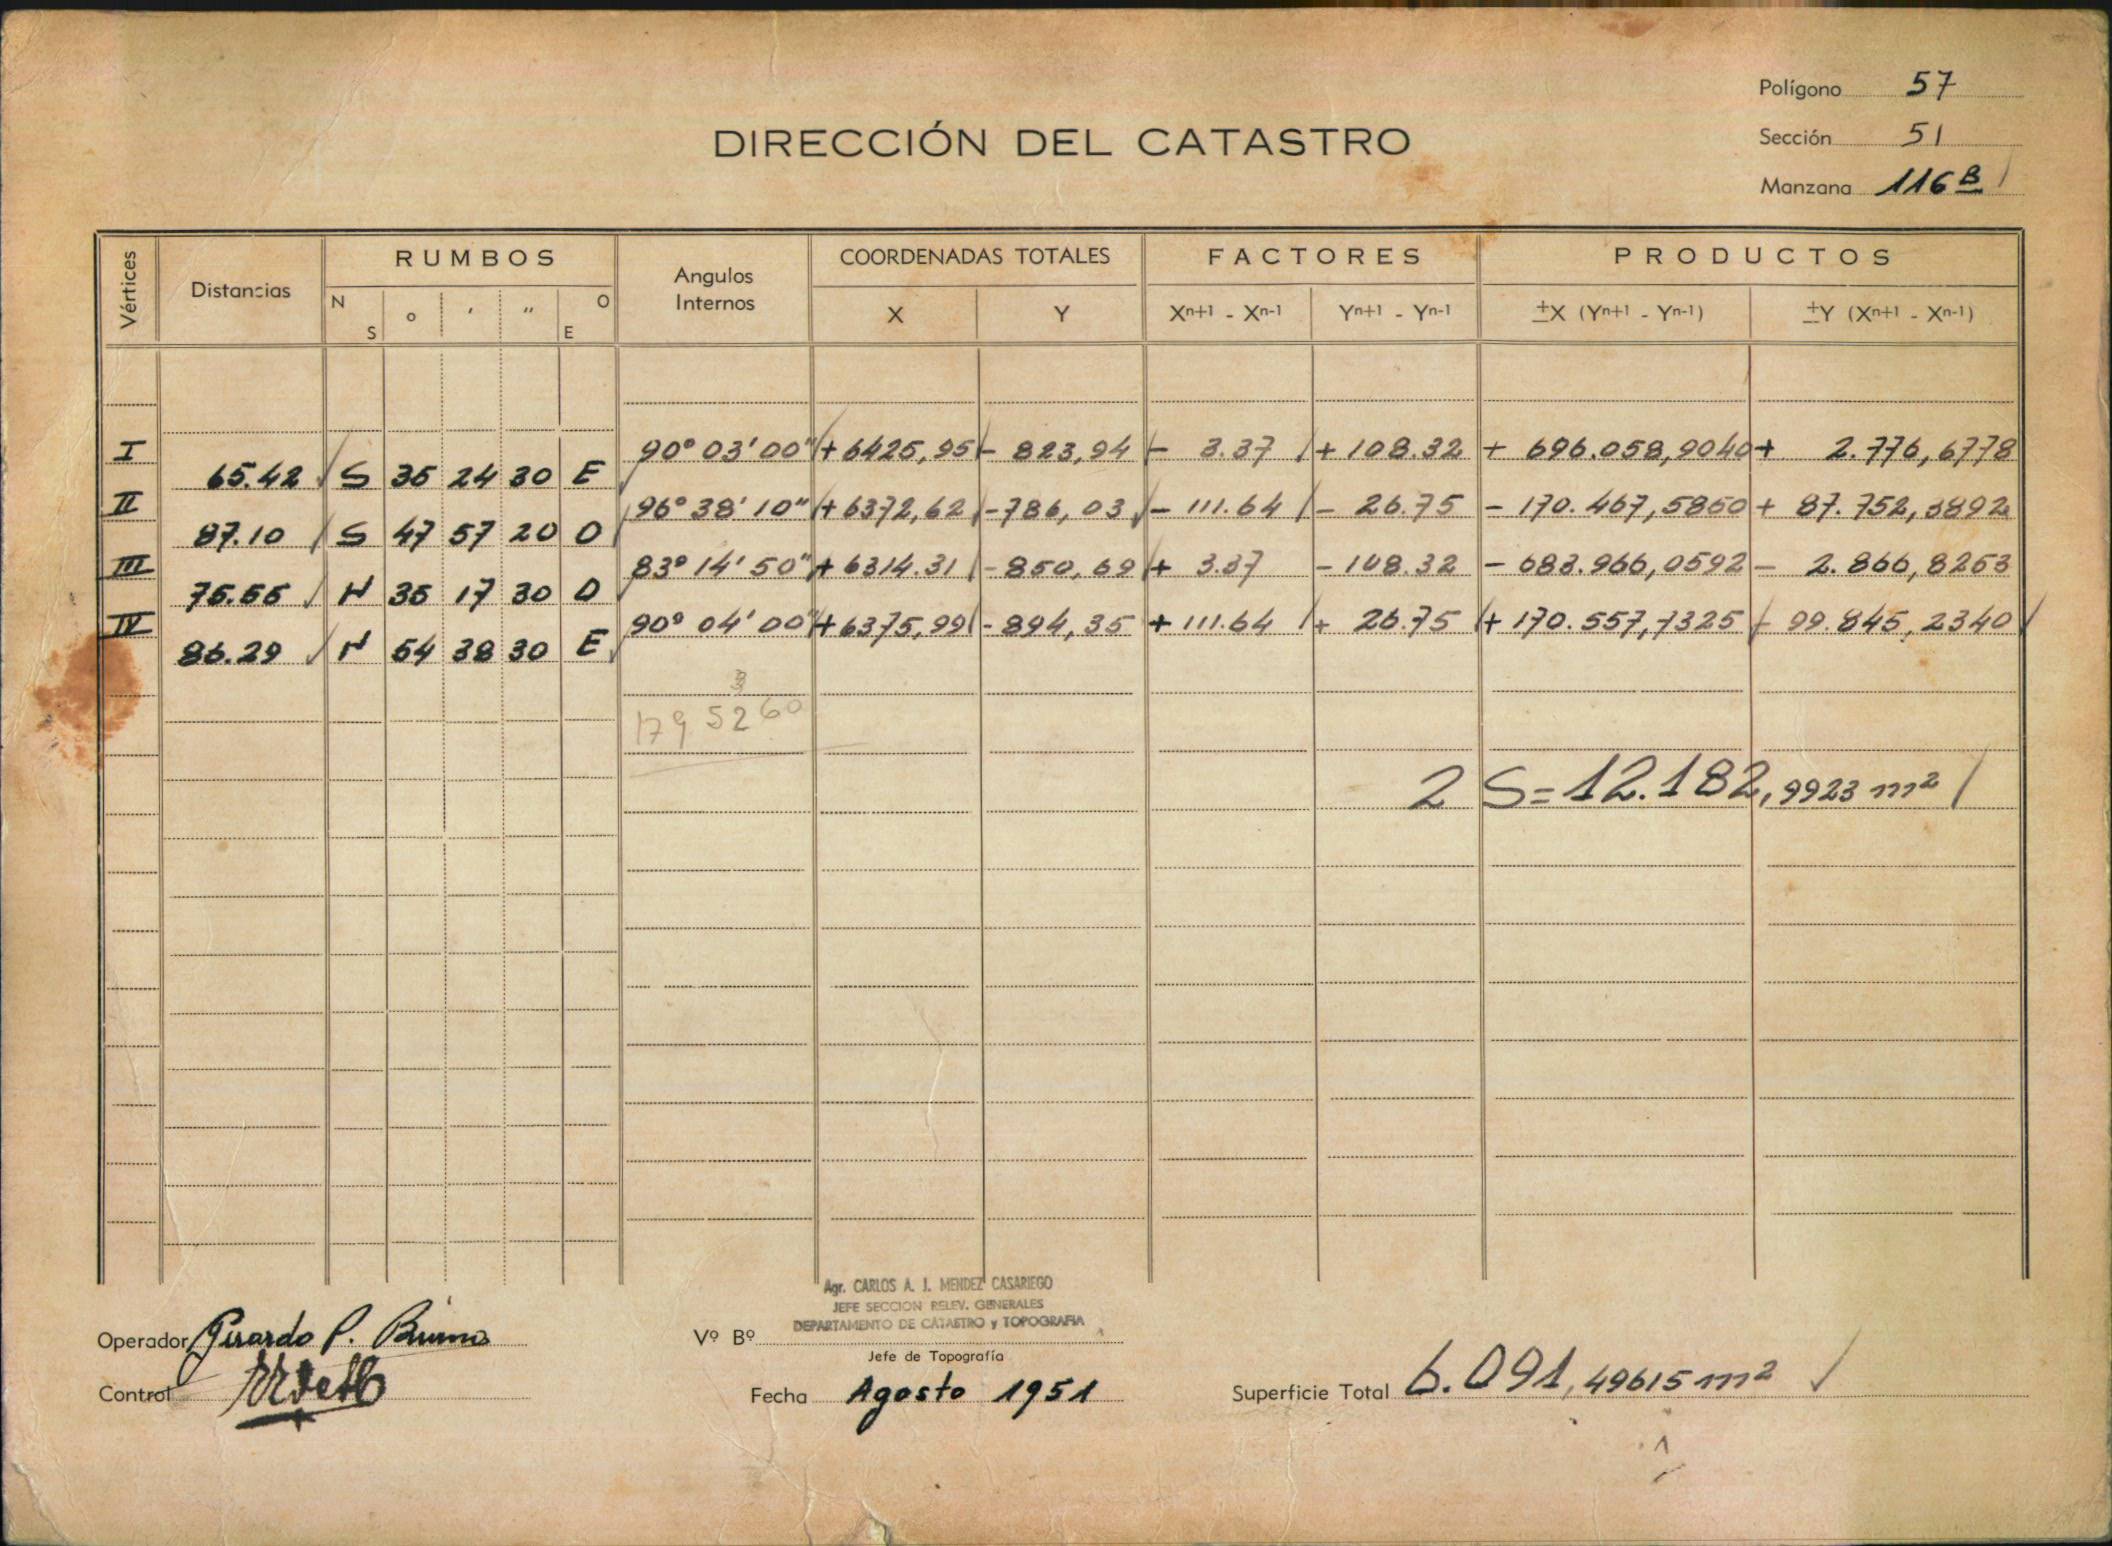 Polígono 57
DIRECCIÓN DEL CATASTRO
Sección 51
Manzana 116 B
Vértices Distancias RUMBOS Angulos Internos COORDENADAS TOTALES FACTORES PRODUCTOS
N S o ′ ″ O E X Y Xn+1 - Xn-1 Yn+1 - Yn-1 ±X (Yn+1 - Yn-1) ±Y (Xn+1 - Xn-1)
I 90° 03' 00" + 6425,95 - 823,94 - 3.37 + 108.32 + 696.058,9040 + 2.776,6778
65.42 S 35 24 30 E
II 96° 38' 10" + 6372,62 - 786,03 - 111.64 - 26.75 - 170.467,5850 + 87.752,3892
87.10 S 47 57 20 O
III 83° 14' 50" + 6314.31 - 850,69 + 3.37 - 108.32 - 683.966,0592 - 2.866,8253
75.55 N 35 17 30 O
IV 90° 04' 00" + 6375,99 - 894,35 + 111.64 + 26.75 + 170.557,7325 - 99.845,2340
86.29 N 54 38 30 E
179 52 60
2 S = 12.182,9923 m²
Agr. CARLOS A. J. MENDEZ CASARIEGO
JEFE SECCION RELEV. GENERALES
DEPARTAMENTO DE CATASTRO y TOPOGRAFIA
Operador Gerardo P. Bruno
Vº Bº
Jefe de Topografía
Control
Fecha Agosto 1951
Superficie Total 6.091,49615 m²